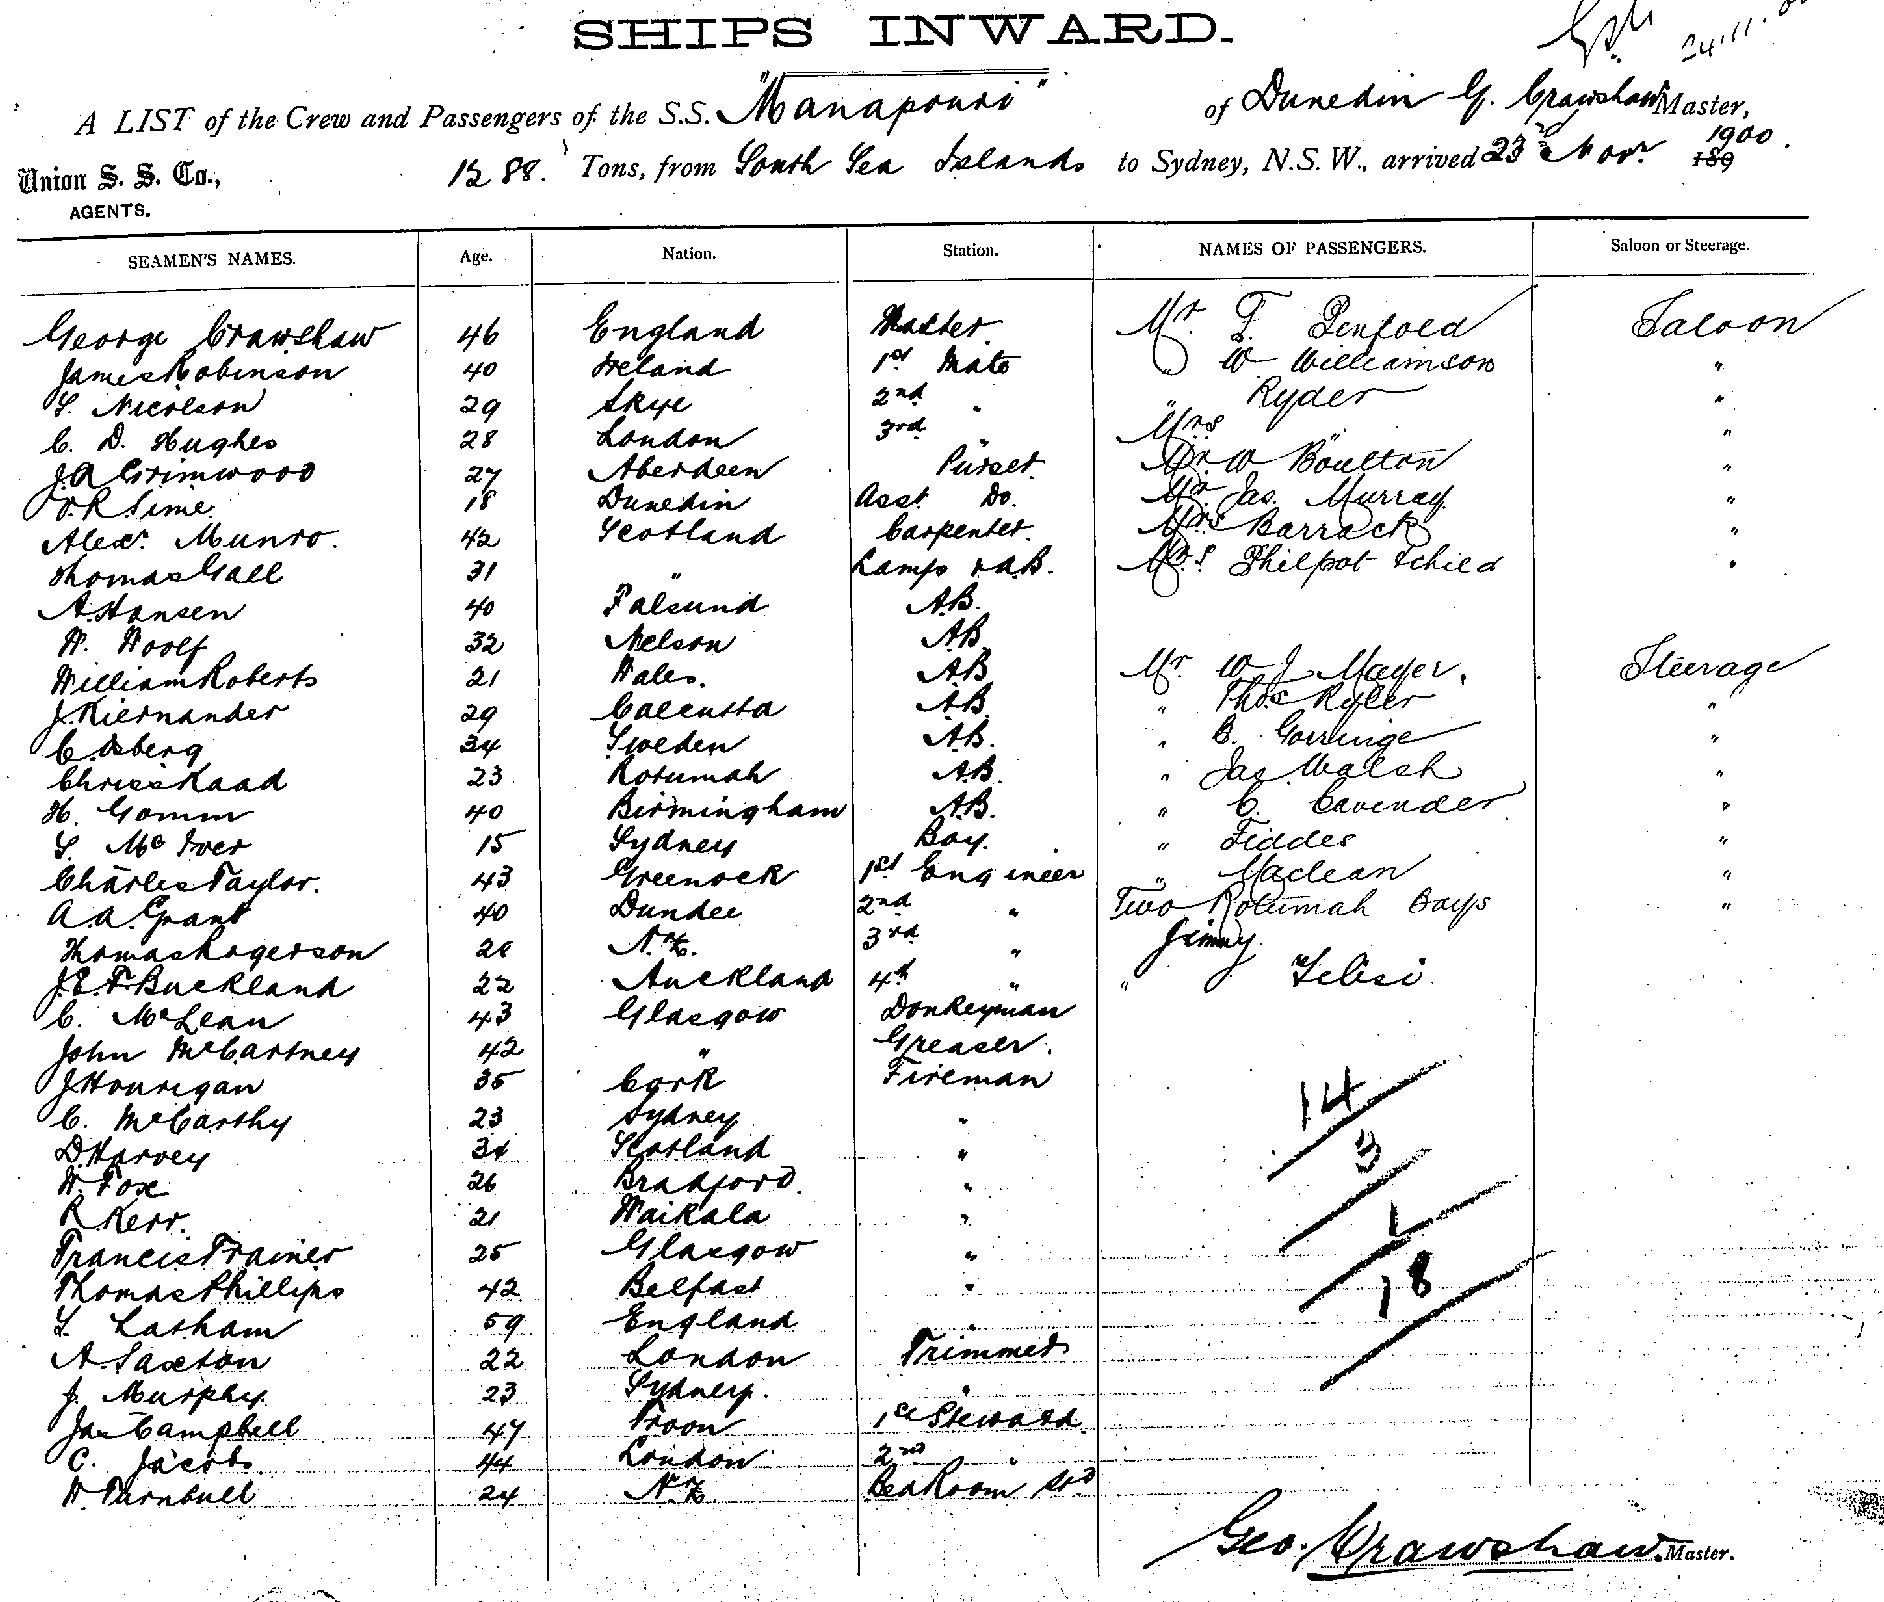 SHIPS INWARD.
24.11.00
A LIST of the Crew and Passengers of the S.S. "Manapouri" of Dunedin G. Crawshaw Master,
Union S. S. Co., AGENTS. 1288. Tons, from South Sea Islands to Sydney, N.S.W., arrived 23rd Novr 189 1900.
SEAMEN'S NAMES. Age. Nation. Station. NAMES OF PASSENGERS. Saloon or Steerage.
George Crawshaw 46 England Master. Mr. F. Penfold Saloon
James Robinson 40 Ireland 1st Mate W Williamson "
S. Nicolson 29 Skye 2nd " " Ryder "
C. D. Hughes 28 London 3rd " Mrs " "
J.A Grimwood 27 Aberdeen Purser. Mr. W Boulton "
R Sime. 18 Dunedin Asst. Do. Mr Jas. Murray "
Alexr. Munro. 42 Scotland Carpenter. Mrs Barrack "
Thomas Gall 31 " Lamps & A.B. Mrs. Philpot & child "
A. Hansen 40 Palsund A.B.
W. Woolf 32 Nelson A.B
William Roberts 21 Wales. A.B Mr W J Mayer. Steerage
J. Kiernander 29 Calcutta A.B " Thos Ryder "
C. Osberg 34 Sweden A.B. " B. Gorringe "
Chriss Kaad 23 Rotumah A.B. " Jas Walsh "
H. Gomm 40 Birmingham A.B. " C. Cavender "
S. McIver 15 Sydney Boy. " Fiddes "
Charles Taylor. 43 Greenock 1st Engineer " Maclean "
A.A. Grant 40 Dundee 2nd " Two Rotumah Boys "
Thomas Rogerson 28 N.Z. 3rd " Jimmy.
J.E.F. Buckland 22 Auckland 4th " "
C. McLean 43 Glasgow Donkeyman
John McCartney 42 " Greaser.
J. Hourigan 35 Cork Fireman 14
C. McCarthy 23 Sydney "
D. Harvey 34 Scotland " 3
W. Fox 26 Bradford. "
R Kerr. 21 Waikala " 1
Francis Trainer 25 Glasgow "
Thomas Phillips 42 Belfast " 18
S. Latham 59 England "
A. Saxton 22 London Trimmer
J. Murphy. 23 Sydney. "
Jas Campbell 47 Troon 1st Steward
C. Jacobs. 44 London 2nd "
W. Turnbull 24 N.Z. Bed Room Std
Geo. Crawshaw. Master.